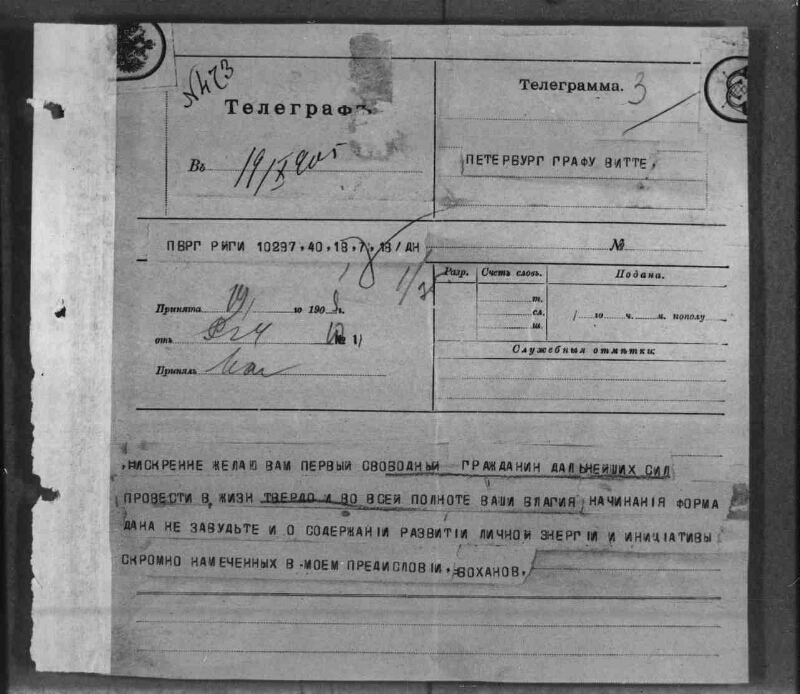 № 473
Телеграфъ
Въ 19/X 905
Телеграмма. 3
ПЕТЕРБУРГ ГРАФУ ВИТТЕ,
ПБРГ РИГИ 10297,40,18,7,18/ДН
№
Принята 19/ го 190 г.
отъ № 11
Принялъ
Разр.
Счетъ словъ.
т.
сл.
ш.
Подана.
/ го ч. м. пополу
Служебныя отмѣтки:
,ИСКРЕННЕ ЖЕЛАЮ ВАМ ПЕРВЫЙ СВОБОДНЫЙ ГРАЖДАНИН ДАЛЬНЕЙШИХ СИЛ
ПРОВЕСТИ В, ЖИЗН ТВЕРДО И ВО ВСЕЙ ПОЛНОТЕ ВАШИ БЛАГИЯ НАЧИНАНІЯ ФОРМА
ДАНА НЕ ЗАБУДЬТЕ И О СОДЕРЖАНІИ РАЗВИТІИ ЛИЧНОЙ ЭНЕРГІИ И ИНИЦІАТИВЫ
СКРОМНО НАМЕЧЕННЫХ В -МОЕМ ПРЕДИСЛОВІИ, ВОХАНОВ,